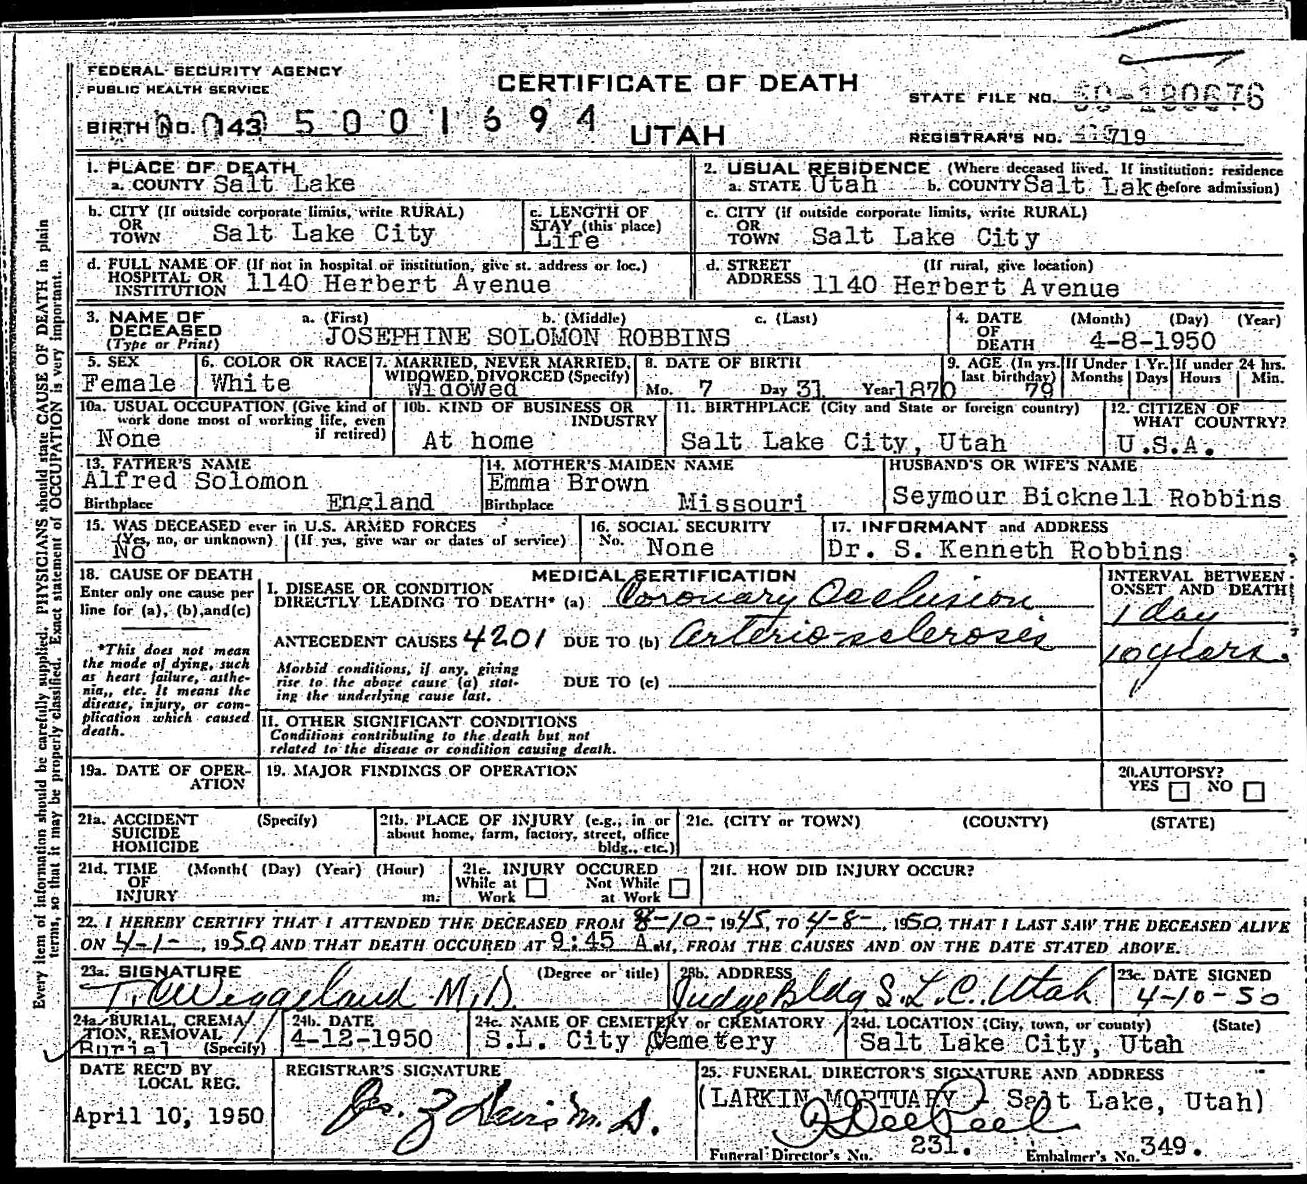 FEDERAL SECURITY AGENCY
PUBLIC HEALTH SERVICE
CERTIFICATE OF DEATH
STATE FILE NO.
BIRTH No. 143 5001694
UTAH
REGISTRAR'S NO. 719
1. PLACE OF DEATH
a. COUNTY Salt Lake
2. USUAL RESIDENCE (Where deceased lived. If institution: residence
a. STATE Utah b. COUNTY Salt Lake before admission)
b. CITY (If outside corporate limits, write RURAL)
OR
TOWN Salt Lake City
c. LENGTH OF
STAY (this place)
Life
c. CITY (if outside corporate limits, write RURAL)
OR
TOWN Salt Lake City
d. FULL NAME OF (If not in hospital or institution, give st. address or loc.)
HOSPITAL OR
INSTITUTION 1140 Herbert Avenue
d. STREET (If rural, give location)
ADDRESS 1140 Herbert Avenue
3. NAME OF a. (First) b. (Middle) c. (Last)
DECEASED
(Type or Print) JOSEPHINE SOLOMON ROBBINS
4. DATE (Month) (Day) (Year)
OF
DEATH 4-8-1950
5. SEX
Female
6. COLOR OR RACE
White
7. MARRIED, NEVER MARRIED,
WIDOWED, DIVORCED (Specify)
Widowed
8. DATE OF BIRTH
Mo. 7 Day 31 Year 1870
9. AGE (In yrs.
last birthday)
79
If Under 1 Yr.
Months Days
If under 24 hrs.
Hours Min.
10a. USUAL OCCUPATION (Give kind of
work done most of working life, even
if retired)
None
10b. KIND OF BUSINESS OR
INDUSTRY
At home
11. BIRTHPLACE (City and State or foreign country)
Salt Lake City, Utah
12. CITIZEN OF
WHAT COUNTRY?
U.S.A.
13. FATHER'S NAME
Alfred Solomon
Birthplace England
14. MOTHER'S MAIDEN NAME
Emma Brown
Birthplace Missouri
HUSBAND'S OR WIFE'S NAME
Seymour Bicknell Robbins
15. WAS DECEASED ever in U.S. ARMED FORCES
(Yes, no, or unknown) (If yes, give war or dates of service)
No
16. SOCIAL SECURITY
No. None
17. INFORMANT and ADDRESS
Dr. S. Kenneth Robbins
18. CAUSE OF DEATH
Enter only one cause per
line for (a), (b), and (c)
*This does not mean
the mode of dying, such
as heart failure, asthe-
nia,, etc. It means the
disease, injury, or com-
plication which caused
death.
MEDICAL SERTIFICATION
I. DISEASE OR CONDITION
DIRECTLY LEADING TO DEATH* (a) Coronary Occlusion
ANTECEDENT CAUSES 4201 DUE TO (b) Arterio-sclerosis
Morbid conditions, if any, giving
rise to the above cause (a) stat-
ing the underlying cause last.
DUE TO (c)
II. OTHER SIGNIFICANT CONDITIONS
Conditions contributing to the death but not
related to the disease or condition causing death.
INTERVAL BETWEEN
ONSET AND DEATH
1 day
10 years.
19a. DATE OF OPER-
ATION
19. MAJOR FINDINGS OF OPERATION
20. AUTOPSY?
YES NO
21a. ACCIDENT (Specify)
SUICIDE
HOMICIDE
21b. PLACE OF INJURY (e.g., in or
about home, farm, factory, street, office
bldg., etc.)
21c. (CITY or TOWN) (COUNTY) (STATE)
21d. TIME (Month( (Day) (Year) (Hour)
OF
INJURY m.
21e. INJURY OCCURED
While at Work Not While at Work
21f. HOW DID INJURY OCCUR?
22. I HEREBY CERTIFY THAT I ATTENDED THE DECEASED FROM 8-10-, 1945, TO 4-8-, 1950, THAT I LAST SAW THE DECEASED ALIVE
ON 4-1-, 1950 AND THAT DEATH OCCURED AT 9:45 A.M., FROM THE CAUSES AND ON THE DATE STATED ABOVE.
23a. SIGNATURE (Degree or title)
Weggeland M.D.
23b. ADDRESS
Judge Bldg S.L.C. Utah
23c. DATE SIGNED
4-10-50
24a. BURIAL, CREMA-
TION, REMOVAL
Burial (Specify)
24b. DATE
4-12-1950
24c. NAME OF CEMETERY or CREMATORY
S.L. City Cemetery
24d. LOCATION (City, town, or county) (State)
Salt Lake City, Utah
DATE REC'D BY
LOCAL REG.
April 10, 1950
REGISTRAR'S SIGNATURE
25. FUNERAL DIRECTOR'S SIGNATURE AND ADDRESS
(LARKIN MORTUARY - Salt Lake, Utah)
Funeral Director's No. 231. Embalmer's No. 349.
Every item of information should be carefully supplied. PHYSICIANS should state CAUSE OF DEATH in plain
terms, so that it may be properly classified. Exact statement of OCCUPATION is very important.